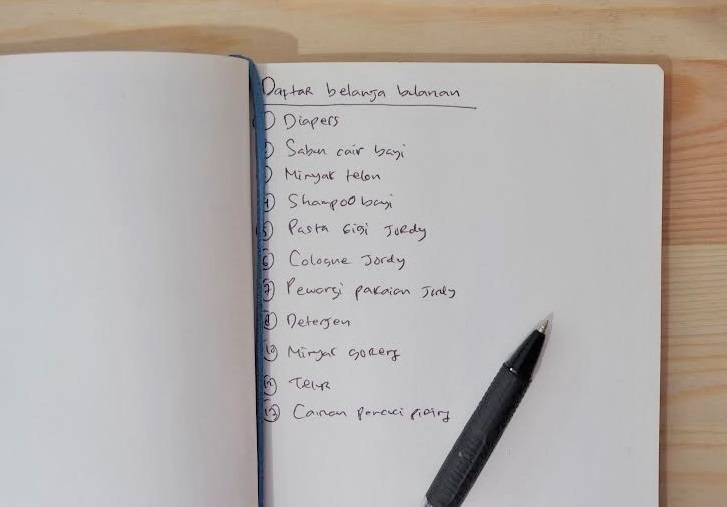 Daftar belanja bulanan
1) Diapers
2) Sabun cair bayi
3) Minyak telon
4) Shampoo bayi
5) Pasta Gigi Jordy
6) Cologne Jordy
7) Pewangi pakaian Jordy
8) Deterjen
10) Minyak goreng
11) Telur
12) Cairan pencuci piring